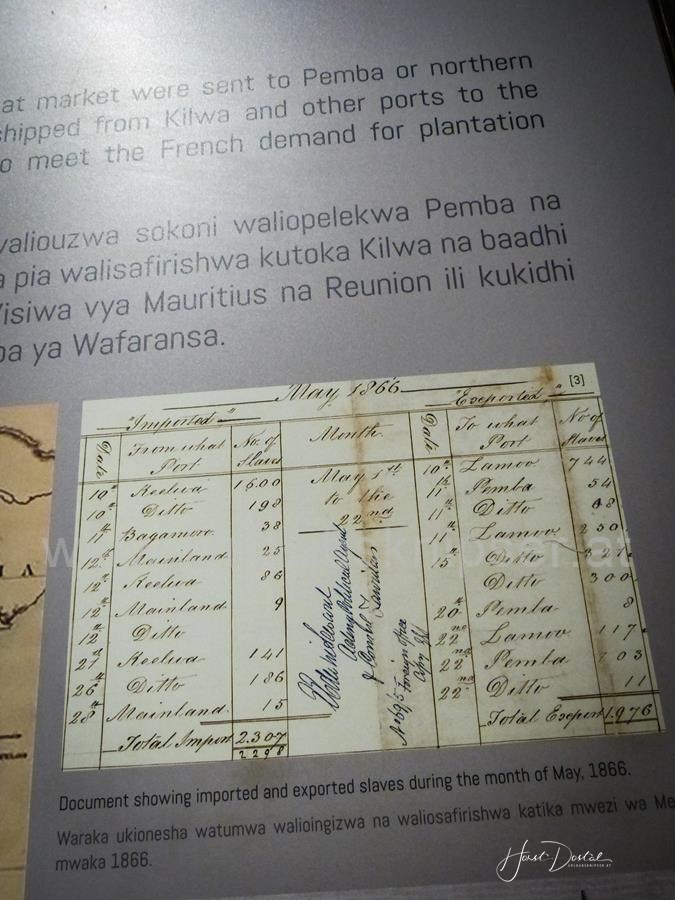 at market were sent to Pemba or northern
shipped from Kilwa and other ports to the
o meet the French demand for plantation
valiouzwa sokoni waliopelekwa Pemba na
a pia walisafirishwa kutoka Kilwa na baadhi
Visiwa vya Mauritius na Reunion ili kukidhi
ba ya Wafaransa.
[3]
May 1866
"Imported" "Exported"
Date From what Port No. of Slaves Month Date To what Port No of Slaves
10th Keelwa 1600 May 1st to the 22nd 10th Lamoo 744
10th Ditto 198 11th Pemba 54
11th Bagamoro 38 11th Ditto
12th Mainland 25 11th Lamoo 250
12th Keelwa 86 15th Ditto
12th Mainland 9 Ditto 300
12th Ditto 20th Pemba 8
27th Keelwa 141 22nd Lamoo 117
26th Ditto 186 22nd Pemba
28th Mainland 15 22nd Ditto 11
Total Import 2.307 Total Export 1.976
2298
Acting Political Agent
& Consul Zanzibar
Foreign Office
Document showing imported and exported slaves during the month of May, 1866.
Waraka ukionesha watumwa walioingizwa na waliosafirishwa katika mwezi wa Me
mwaka 1866.
Horst Dostal